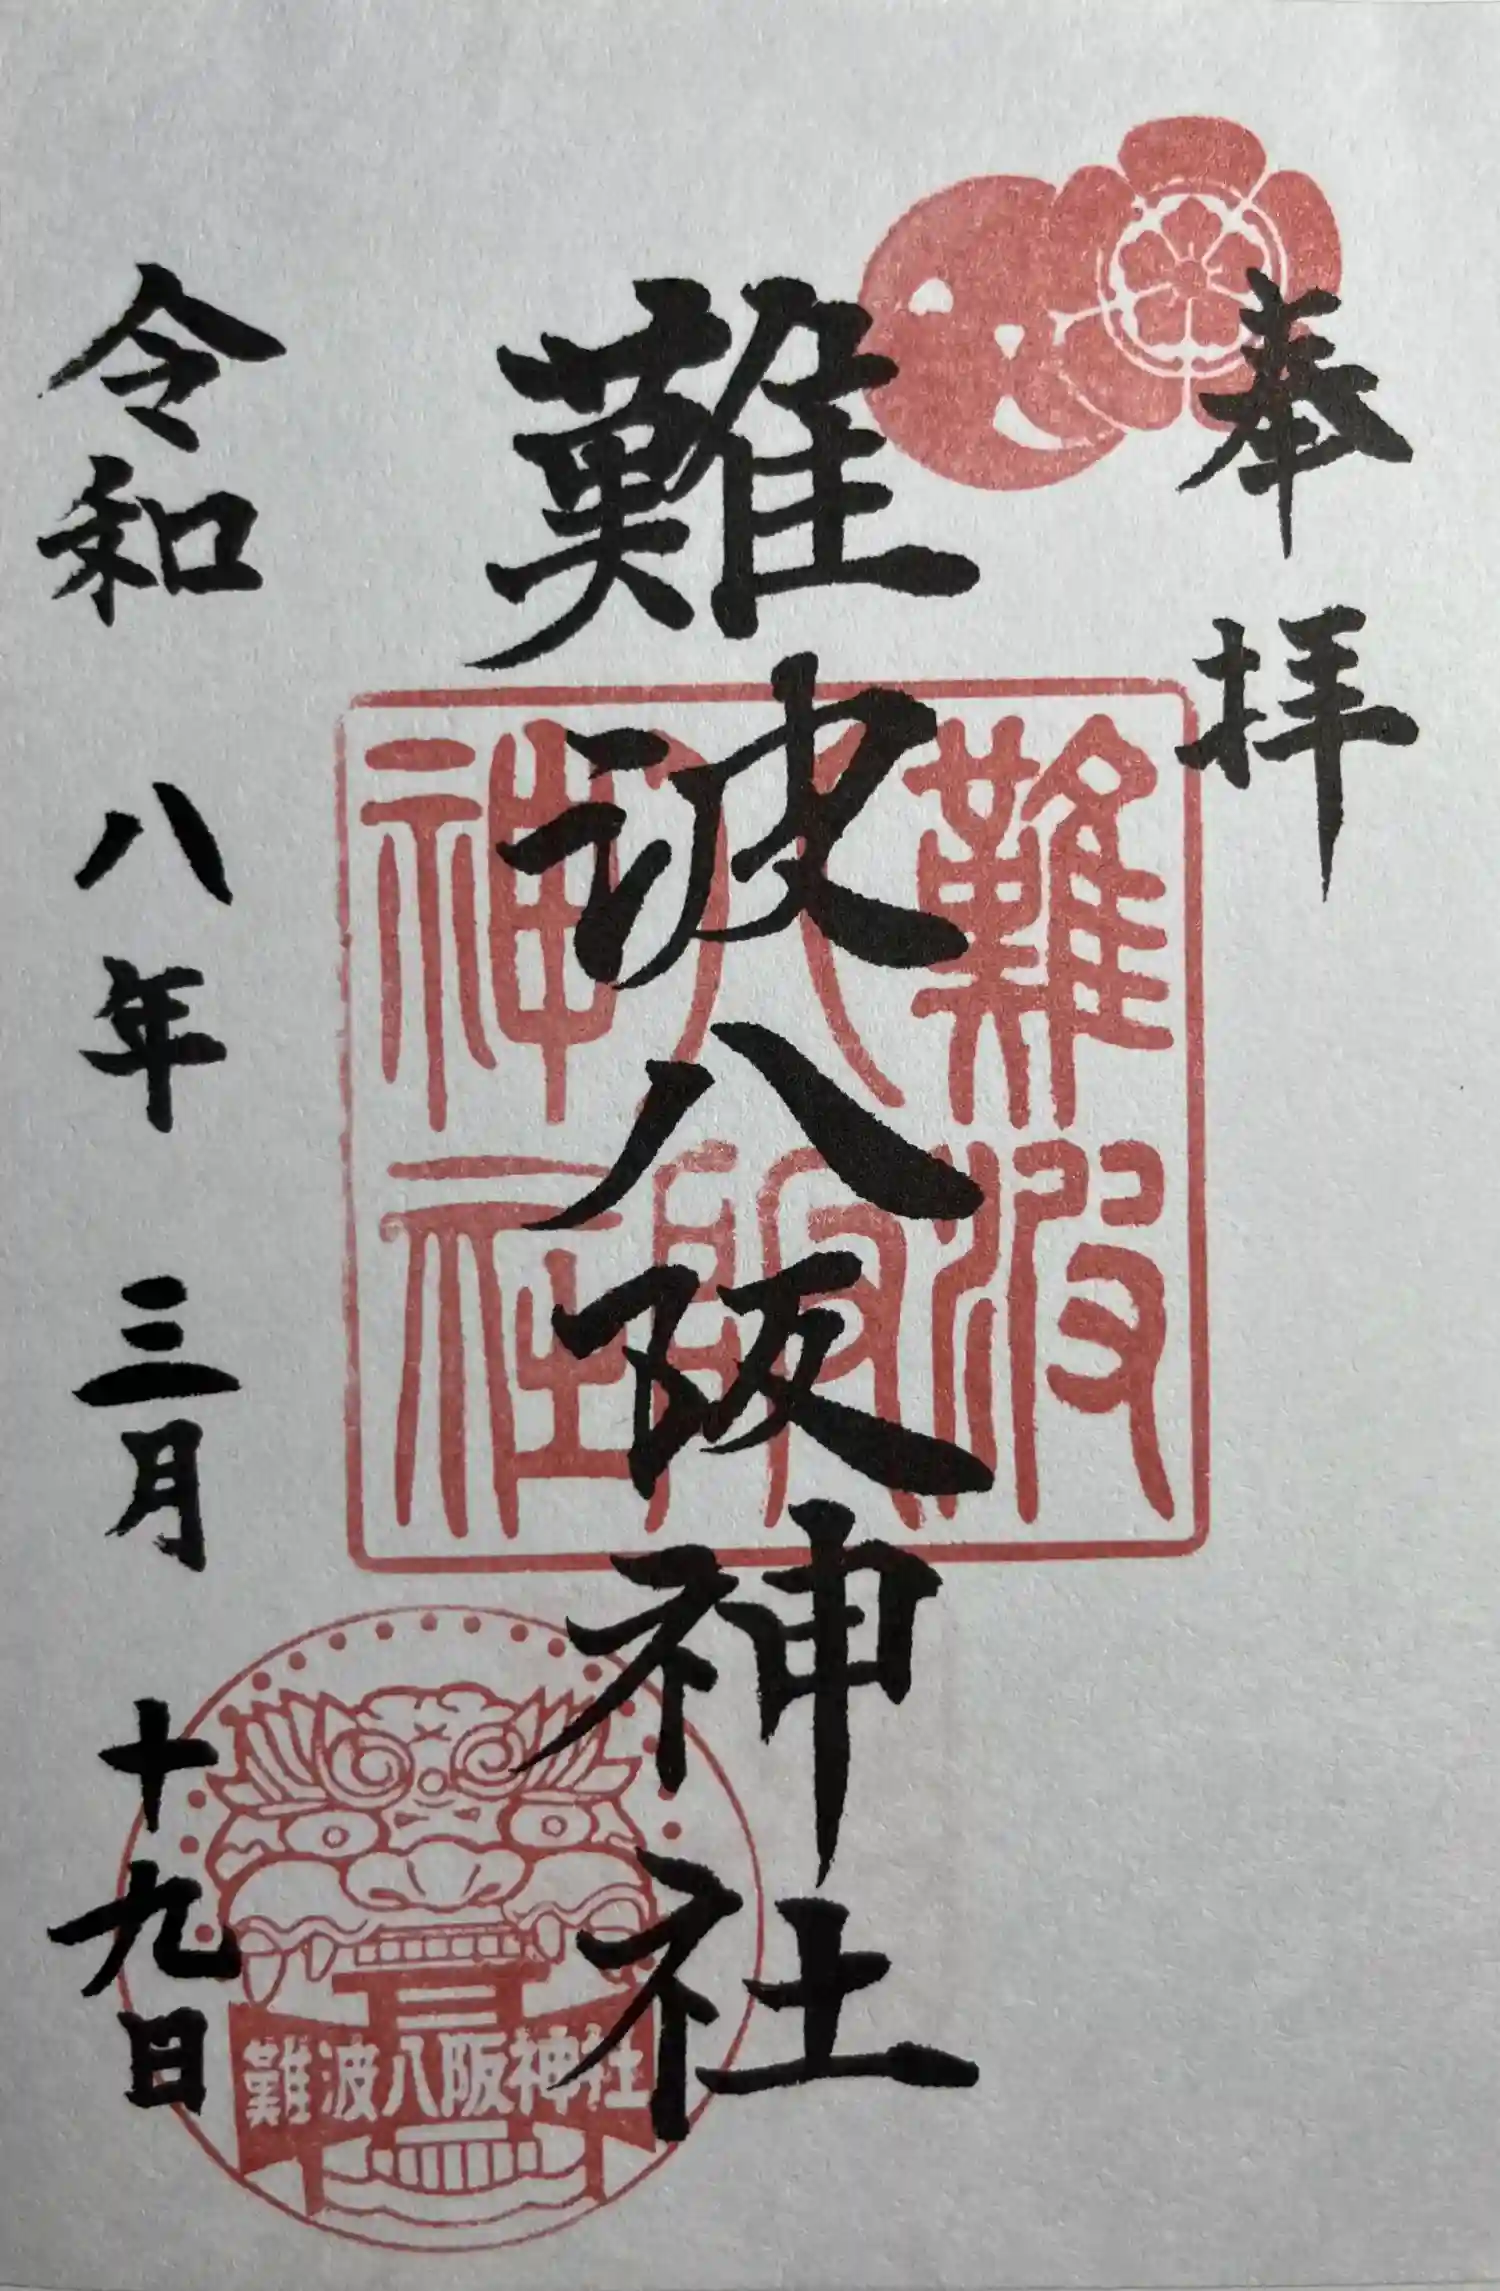 奉拝
難波八阪神社
令和八年三月十九日
難波
八阪
神社
難波八阪神社